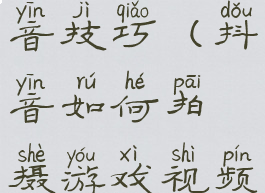 yīn jì qiǎo dǒu
音技巧（抖
yīn rú hé pāi
音如何拍
shè yóu xì shì pín
摄游戏视频